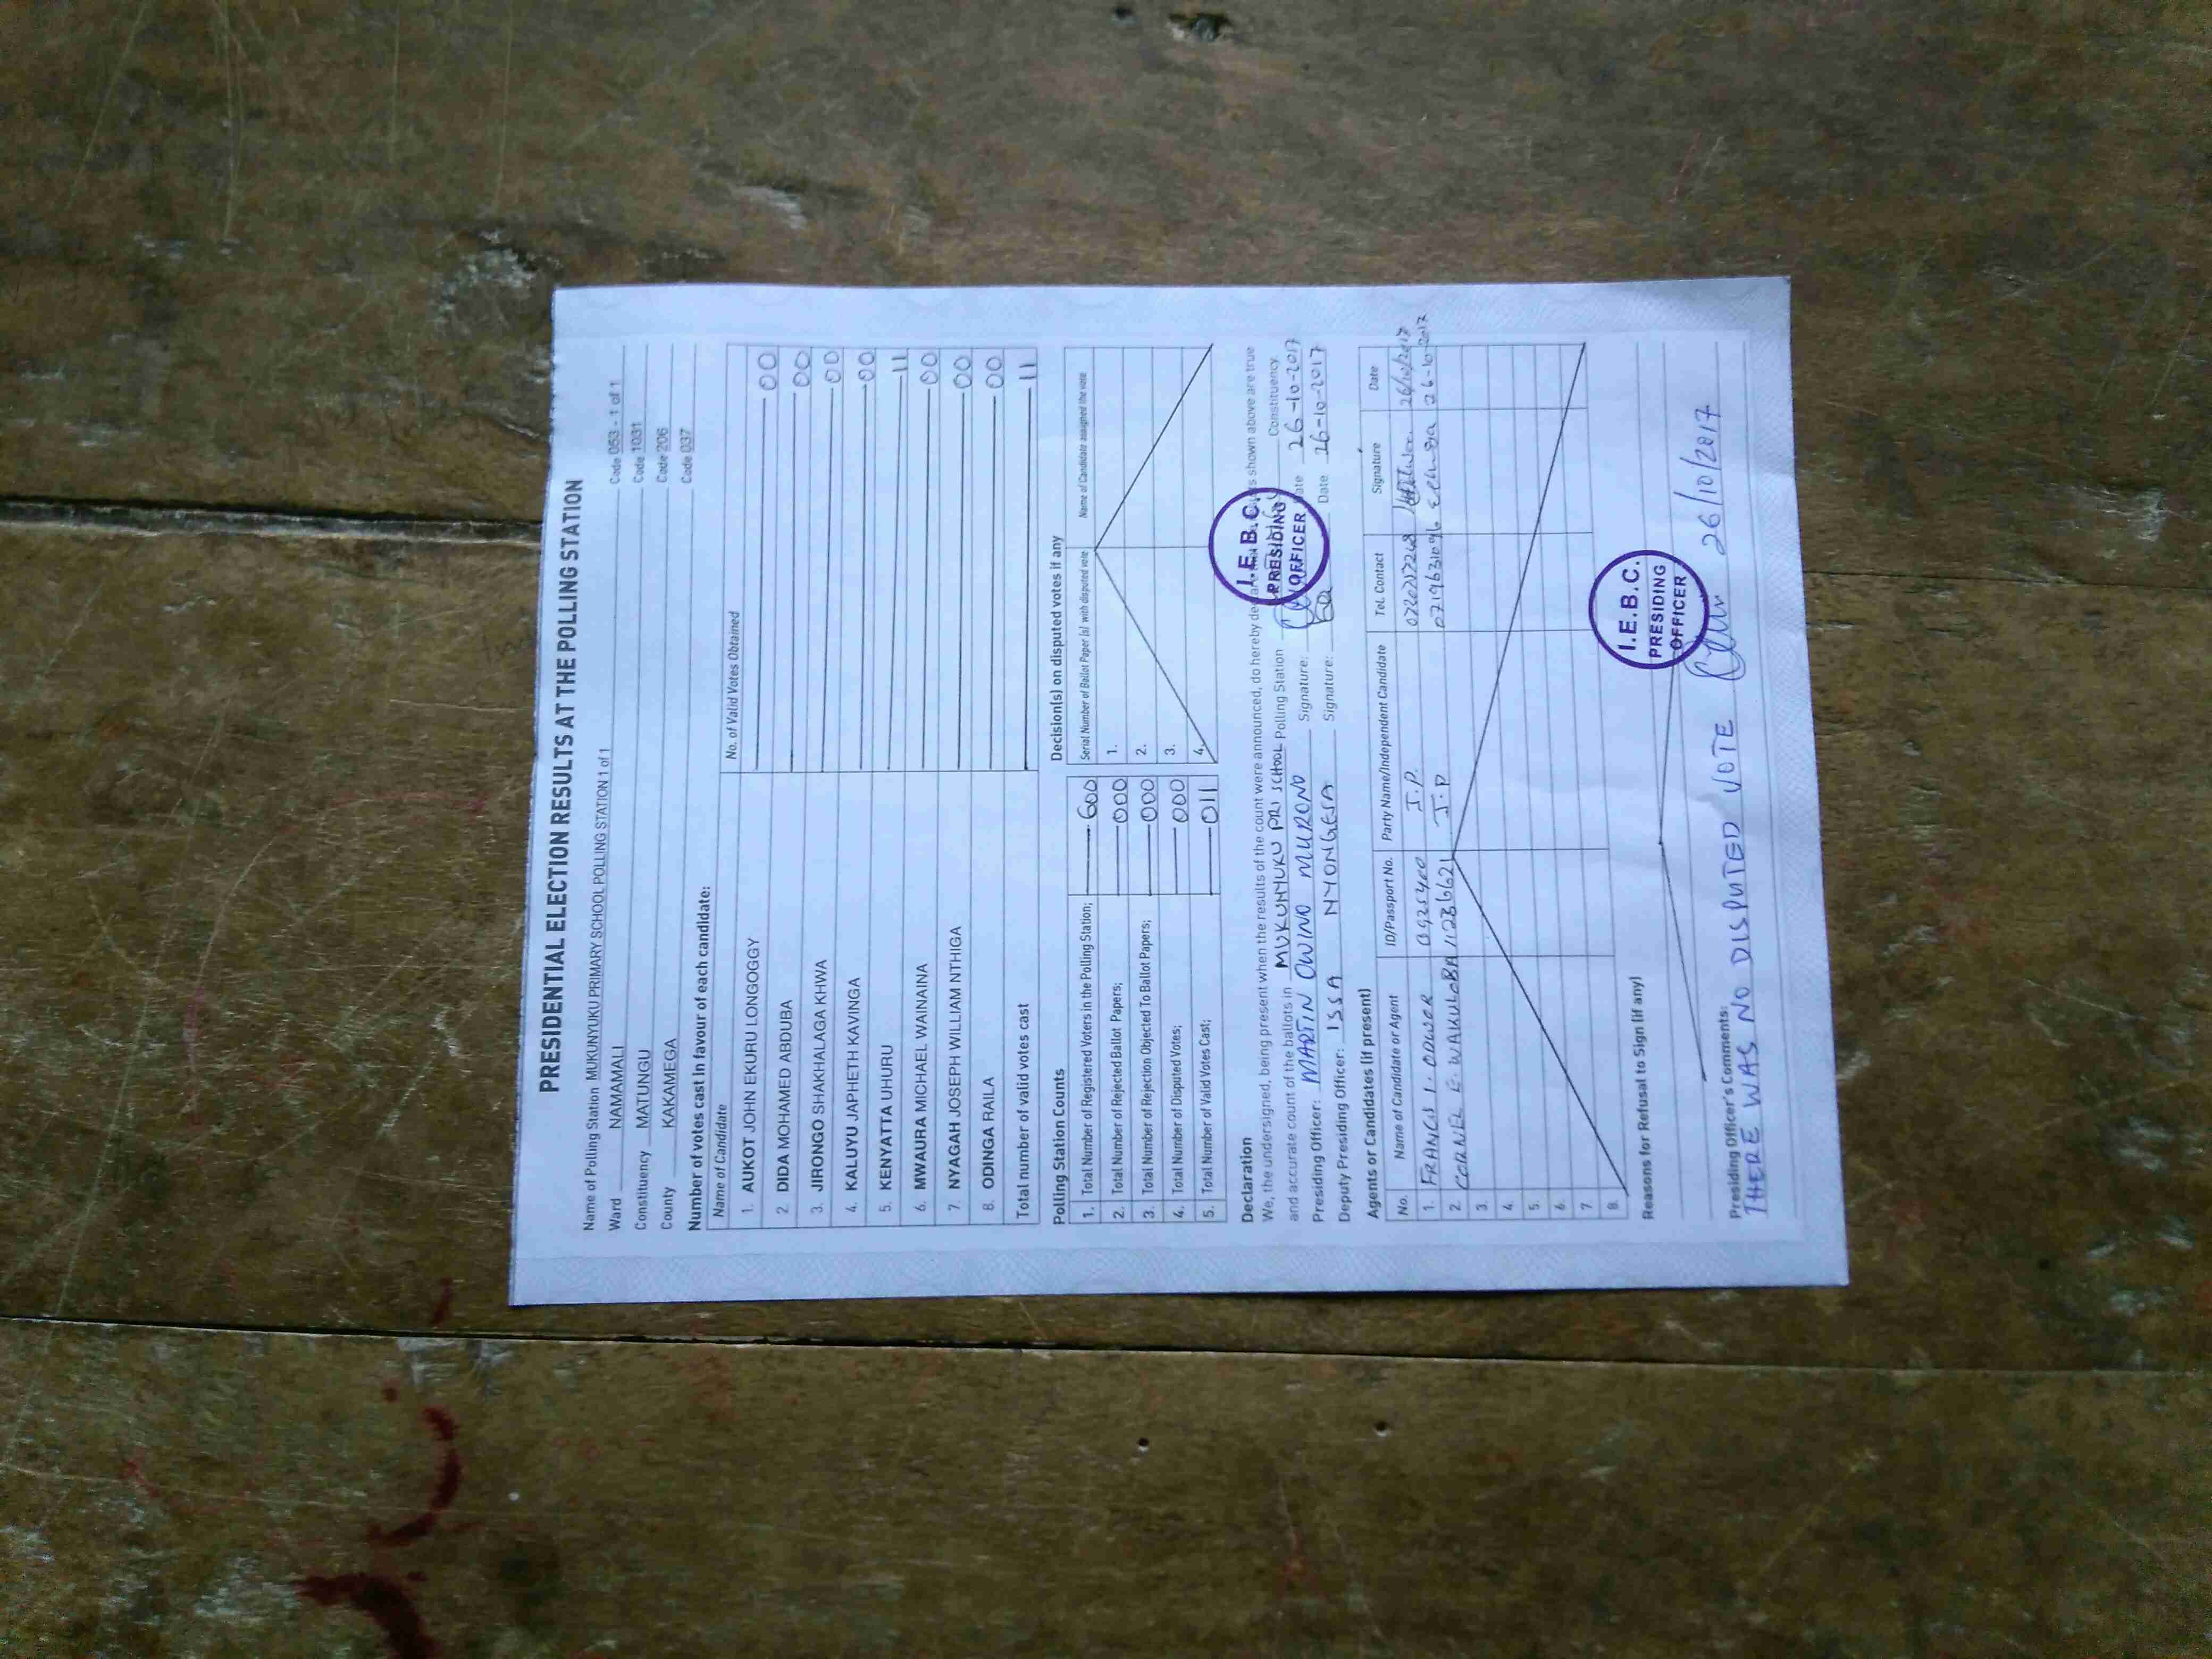 PRESIDENTIAL ELECTION RESULTS AT THE POLLING STATION
Name of Polling Station MUKUNYUKU PRU PRIMARY SCHOOL POLLING STATION 1 of 1 Code 053 - 1 of 1
Ward NAMAMALI Code 1031
Constituency MATUNGU Code 206
County KAKAMEGA Code 037
Number of votes cast in favour of each candidate:
Name of Candidate No. of Valid Votes Obtained
1. AUKOT JOHN EKURU LONGOGGY 00
2. DIDA MOHAMED ABDUBA 00
3. JIRONGO SHAKHALAGA KHWA 00
4. KALUYU JAPHETH KAVINGA 00
5. KENYATTA UHURU 11
6. MWAURA MICHAEL WAINAINA 00
7. NYAGAH JOSEPH WILLIAM NTHIGA 00
8. ODINGA RAILA 00
Total number of valid votes cast 11
Polling Station Counts
1. Total Number of Registered Voters in the Polling Station; 600
2. Total Number of Rejected Ballot Papers; 000
3. Total Number of Rejection Objected To Ballot Papers; 000
4. Total Number of Disputed Votes; 000
5. Total Number of Valid Votes Cast; 011
Decision(s) on disputed votes if any
Serial Number of Ballot Paper (s) with disputed vote Name of Candidate assigned the vote
1.
2.
3.
4.
Declaration
We, the undersigned, being present when the results of the count were announced, do hereby shown above are true
and accurate count of the ballots in MUKUNYUKU PRI SCHOOL Polling Station Constituency
Presiding Officer: MARTIN OWINO MURONO Signature: Date 26-10-2017
Deputy Presiding Officer: ISSA NYONGESA Signature: Date 26-10-2017
I.E.B.C.
PRESIDING
OFFICER
Agents or Candidates (if present)
No. Name of Candidate or Agent ID/Passport No. Party Name/Independent Candidate Tel. Contact Signature Date
1. FRANCIS I. ODUOR J.P. 26/10/2017
2. CORNEL E. WAKULOBA J.P 26-10-2017
3.
4.
5.
6.
7.
8.
Reasons for Refusal to Sign (if any)
I.E.B.C.
PRESIDING
OFFICER
Presiding Officer's Comments:
THERE WAS NO DISPUTED VOTE 26/10/2017